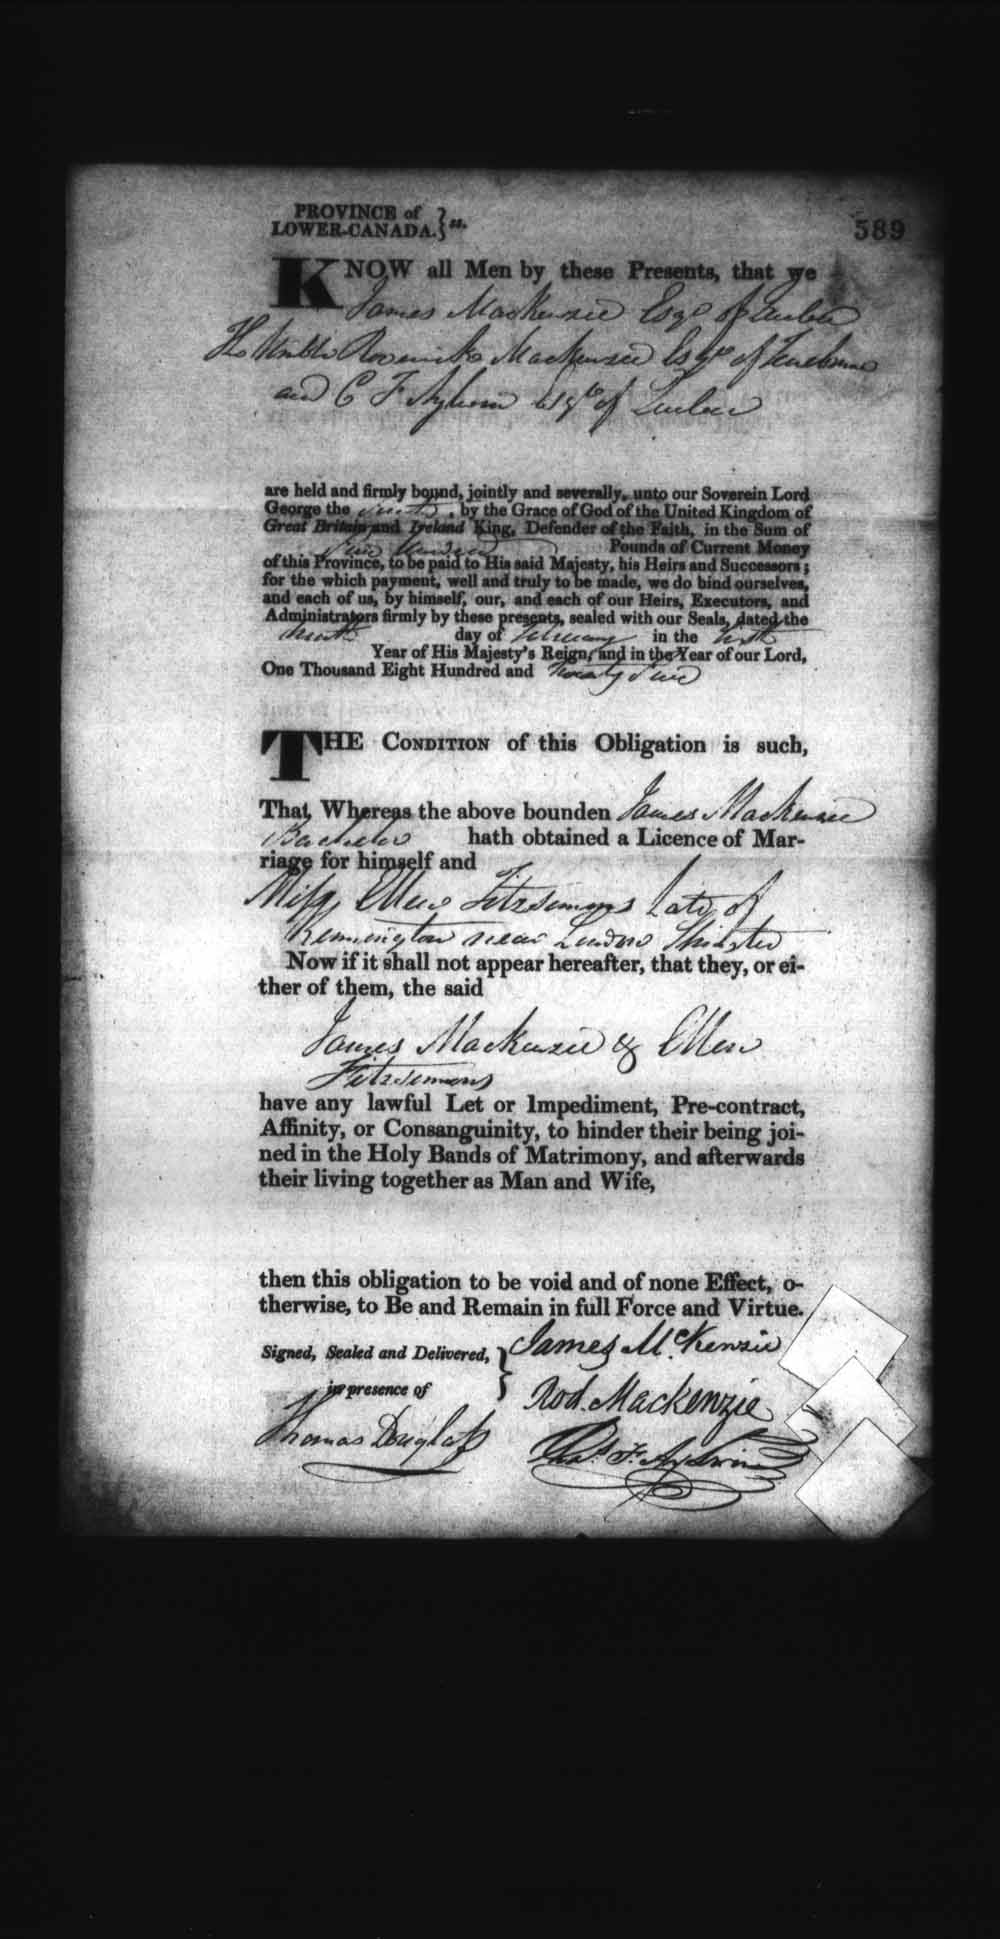 PROVINCE of
LOWER-CANADA. } ss.
589
KNOW all Men by these Presents, that we
James Mackenzie Esqr of Quebec
Honble Roderick Mackenzie Esqr of Terrebonne
and C F Aylwin Esqr of Quebec
are held and firmly bound, jointly and severally, unto our Soverein Lord
George the fourth, by the Grace of God of the United Kingdom of
Great Britain and Ireland King, Defender of the Faith, in the Sum of
Hundred Pounds of Current Money
of this Province, to be paid to His said Majesty, his Heirs and Successors;
for the which payment, well and truly to be made, we do bind ourselves,
and each of us, by himself, our, and each of our Heirs, Executors, and
Administrators firmly by these presents, sealed with our Seals, dated the
day of February in the
Year of His Majesty's Reign, and in the Year of our Lord,
One Thousand Eight Hundred and twenty five
THE CONDITION of this Obligation is such,
That, Whereas the above bounden James Mackenzie
Bachelor hath obtained a Licence of Mar-
riage for himself and
Miss Ellen Fitzsimons Late of
near London Spinster
Now if it shall not appear hereafter, that they, or ei-
ther of them, the said
James Mackenzie & Ellen
Fitzsimons
have any lawful Let or Impediment, Pre-contract,
Affinity, or Consanguinity, to hinder their being joi-
ned in the Holy Bands of Matrimony, and afterwards
their living together as Man and Wife,
then this obligation to be void and of none Effect, o-
therwise, to Be and Remain in full Force and Virtue.
Signed, Sealed and Delivered, } James McKenzie
in presence of
Rod. Mackenzie
Thomas Douglass
Chas. F. Aylwin